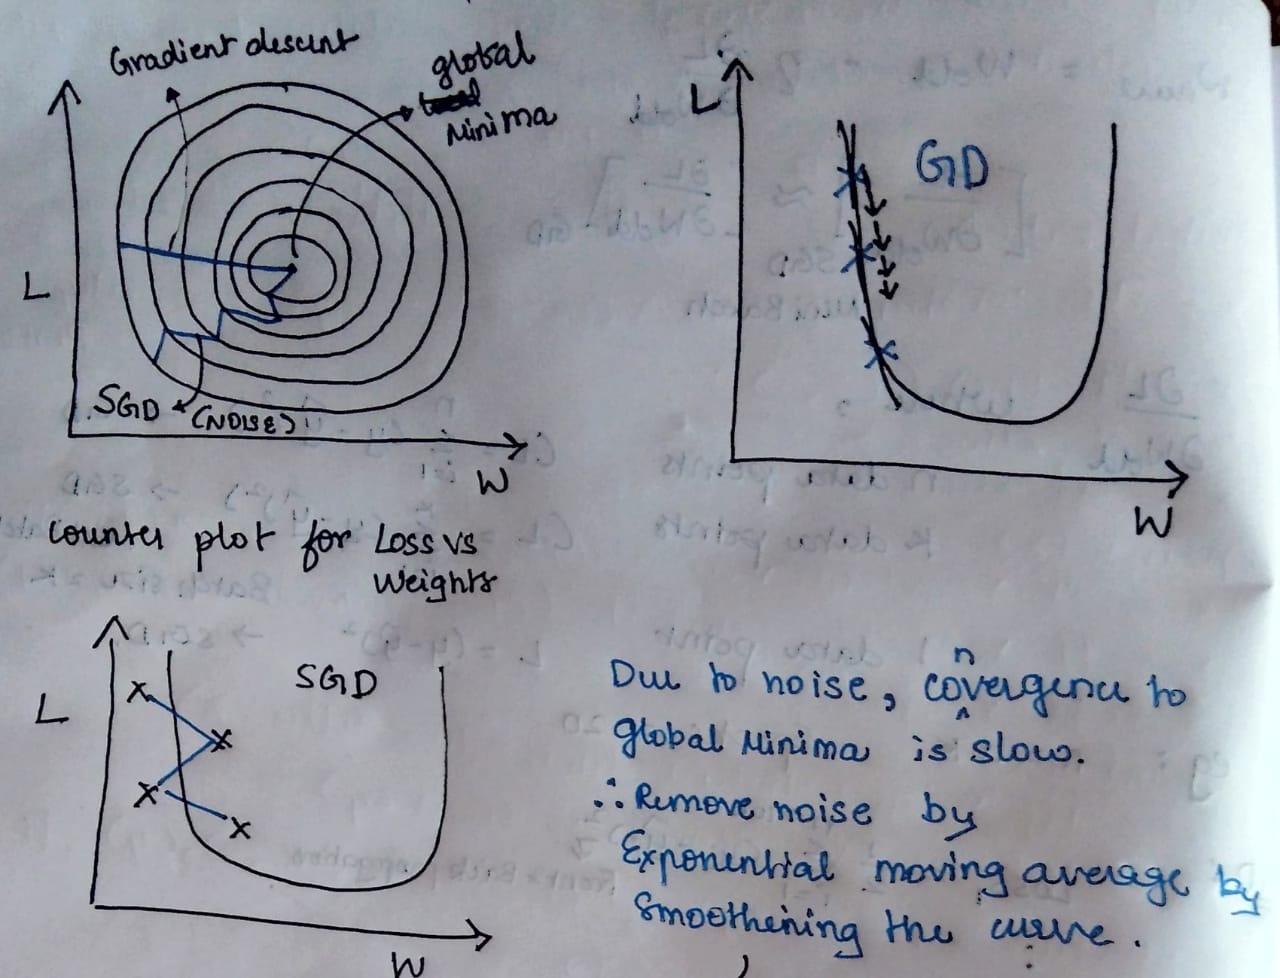 Gradient descent
global
Minima
L
SGD
(NOISE)
W
L
GD
W
counter plot for Loss vs
Weights
L
SGD
W
Due to noise, convergence to
global Minima is slow.
∴ Remove noise by
Exponential moving average by
Smoothening the curve.